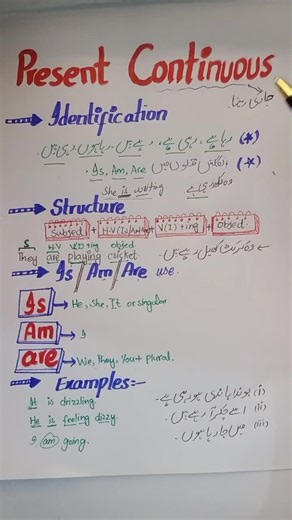 Present Continuous
جاری رہنا
Identification
(*) رہا ہے، رہی ہے، رہے ہیں، رہا ہوں، رہی ہیں
(*) Is, Am, Are
She is writing وہ لکھ رہی ہے
Structure
Subject + H.V (Is/Am/Are) + V(I) + ing + Object
S H.V V(I)+ing object
They are playing cricket وہ کرکٹ کھیل رہے ہیں۔
Is / Am / Are use.
Is → He, She, It or singular
Am → I
are → We, They, You + plural.
Examples:-
It is drizzling. (i) بوندا باندی ہو رہی ہے۔
He is feeling dizzy. (ii) اسے چکر آ رہے ہیں۔
I am going. (iii) میں جا رہا ہوں۔